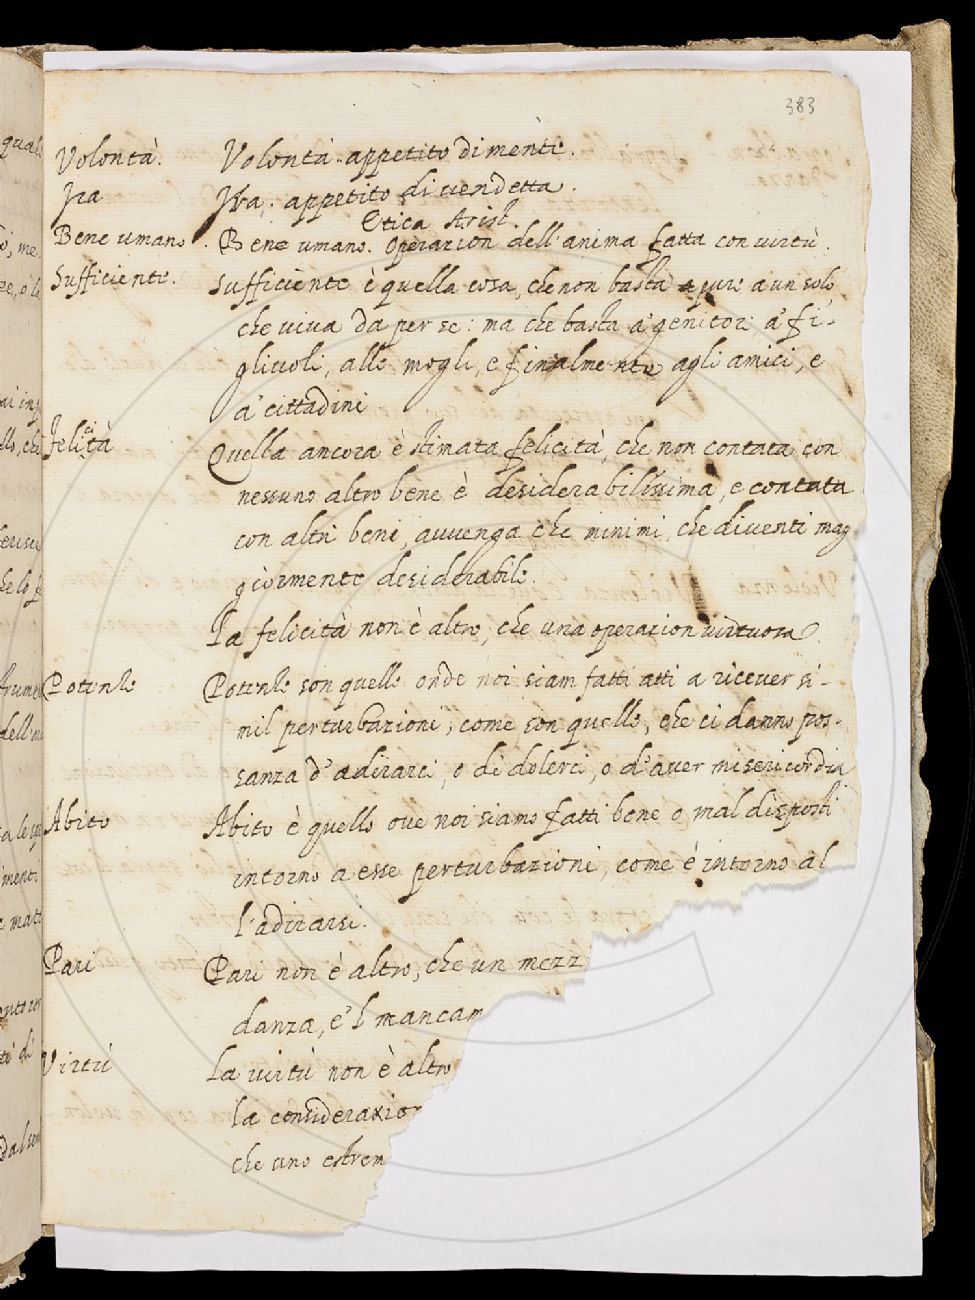 383
Volontà. Volontà. appetito di mente.
Ira Ira. appetito di vendetta.
Etica Arist.
Bene umano. Bene umano. Operazion dell'anima fatta con virtù.
Sufficiente. Sufficiente è quella cosa, che non basta pure a un solo
che viva da per se: ma che basta a' genitori a' fi-
gliuoli, alle mogli, e finalmente agli amici, e
a' cittadini
Felicità Quella ancora è stimata felicità, che non contata con
nessuno altro bene è desiderabilissima, e contata
con altri beni, avvenga che minimi, che diventi mag
giormente desiderabile.
La felicità non è altro, che una operazion virtuosa.
Potenze Potenze son quelle onde noi siam fatti atti a ricever si-
mil perturbazioni, come son quelle, che ci danno pos-
sanza d'adirarci, o di dolerci, o d'aver misericordia
Abito Abito è quello ove noi siamo fatti bene o mal disposti
intorno a esse perturbazioni, come è intorno al
l'adirarsi.
Pari Pari non è altro, che un mezz
danza, e'l mancam
Virtù La virtù non è altro
la considerazion
che uno estrem